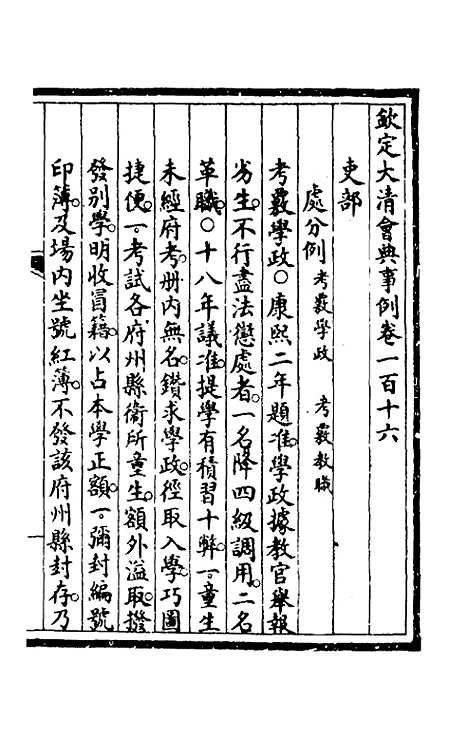 欽定大清會典事例卷一百十六
吏部
處分例 考覈學政 考覈教職
考覈學政○康熙二年題准。學政據教官舉報
劣生。不行盡法懲處者。一名降四級調用。二名
革職。○十八年議准。提學有積習十弊。一。童生
未經府考。册內無名。鑽求學政。徑取入學。巧圖
捷便。一。考試各府州縣衞所童生。額外溢取。撥
發別學。明收冒籍。以占本學正額。一。彌封編號
印簿。及場內坐號紅簿。不發該府州縣封存。乃